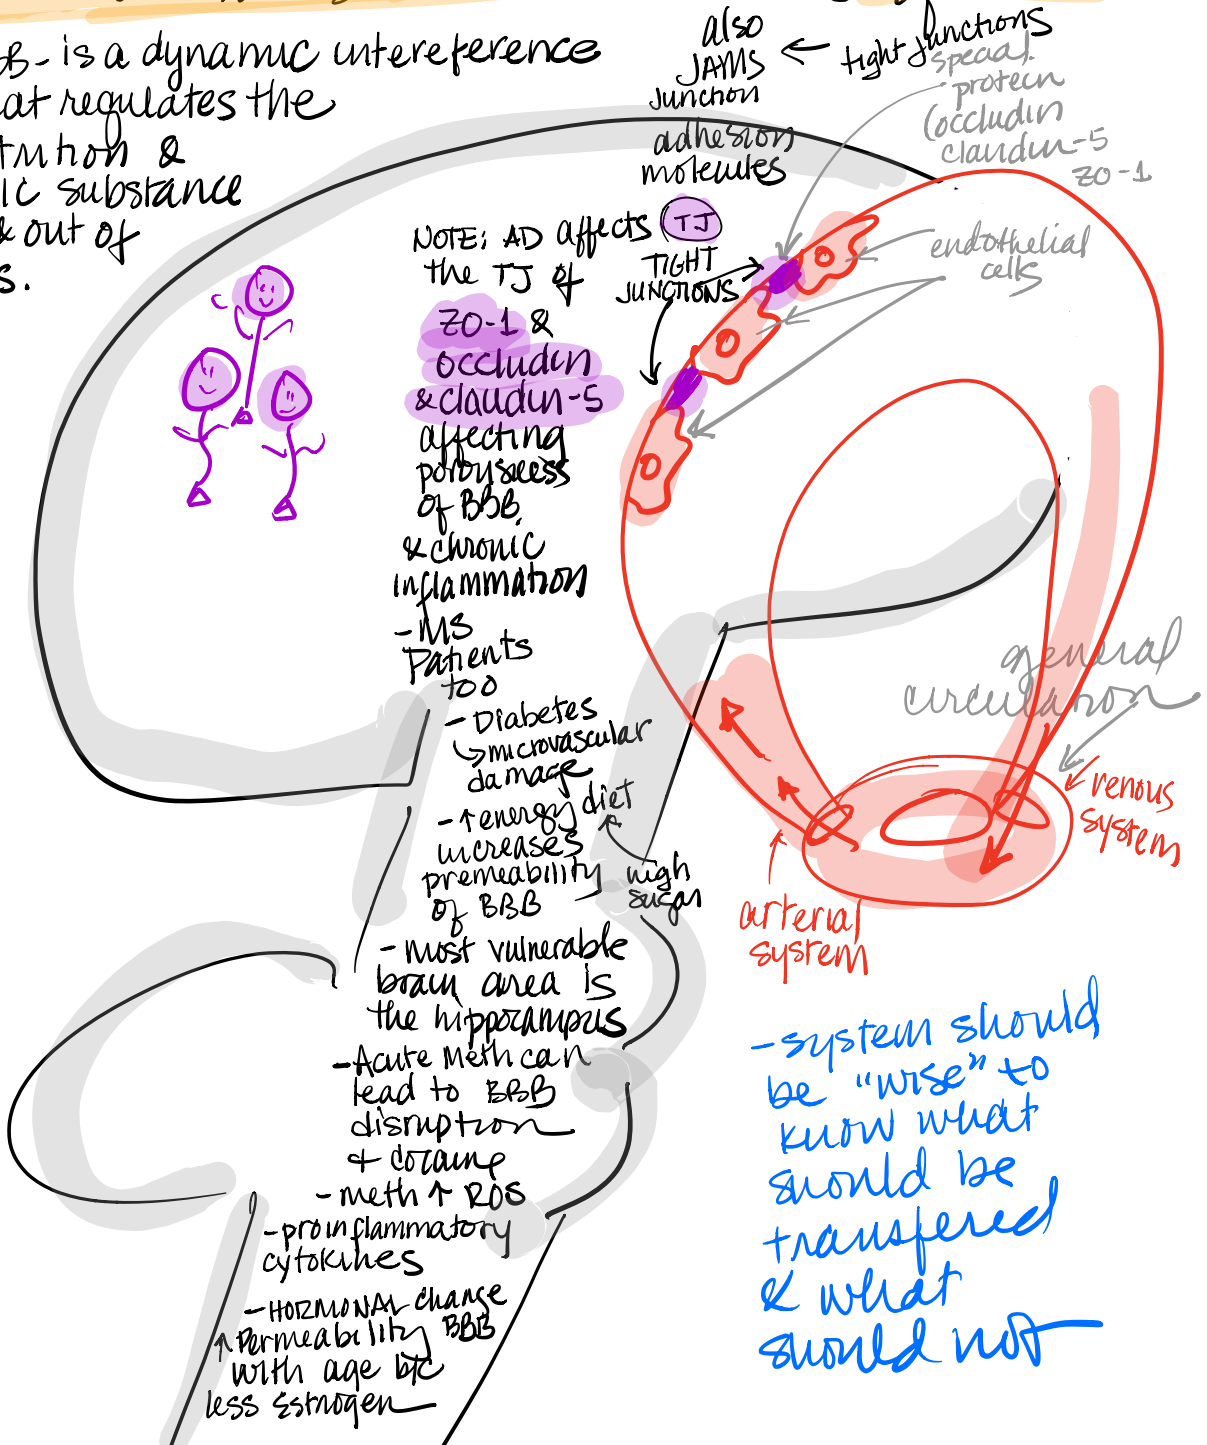 BB - is a dynamic intereference
at regulates the
trition &
ic substance
& out of
s.
also
JAMS ← tight junctions
junction
adhesion
molecules
special
protein
(occludin
claudin-5
ZO-1
endothelial
cells
NOTE: AD affects
the TJ of
ZO-1 &
occludin
& claudin-5
affecting
of BBB,
& chronic
inflammation
- MS
Patients
too
TJ
TIGHT
JUNCTIONS
- Diabetes
↳ microvascular
damage
- ↑ energy diet
increases
premeability
of BBB
high
sugar
- most vulnerable
brain area is
the hippocampus
- Acute Meth can
lead to BBB
disruption
+ cocaine
- meth ↑ ROS
- proinflammatory
cytokines
- HORMONAL change
↑ Permeability BBB
with age b/c
less Estrogen
general
circulation
renous
system
arterial
system
- system should
be "wise" to
know what
should be
transfered
& what
should not